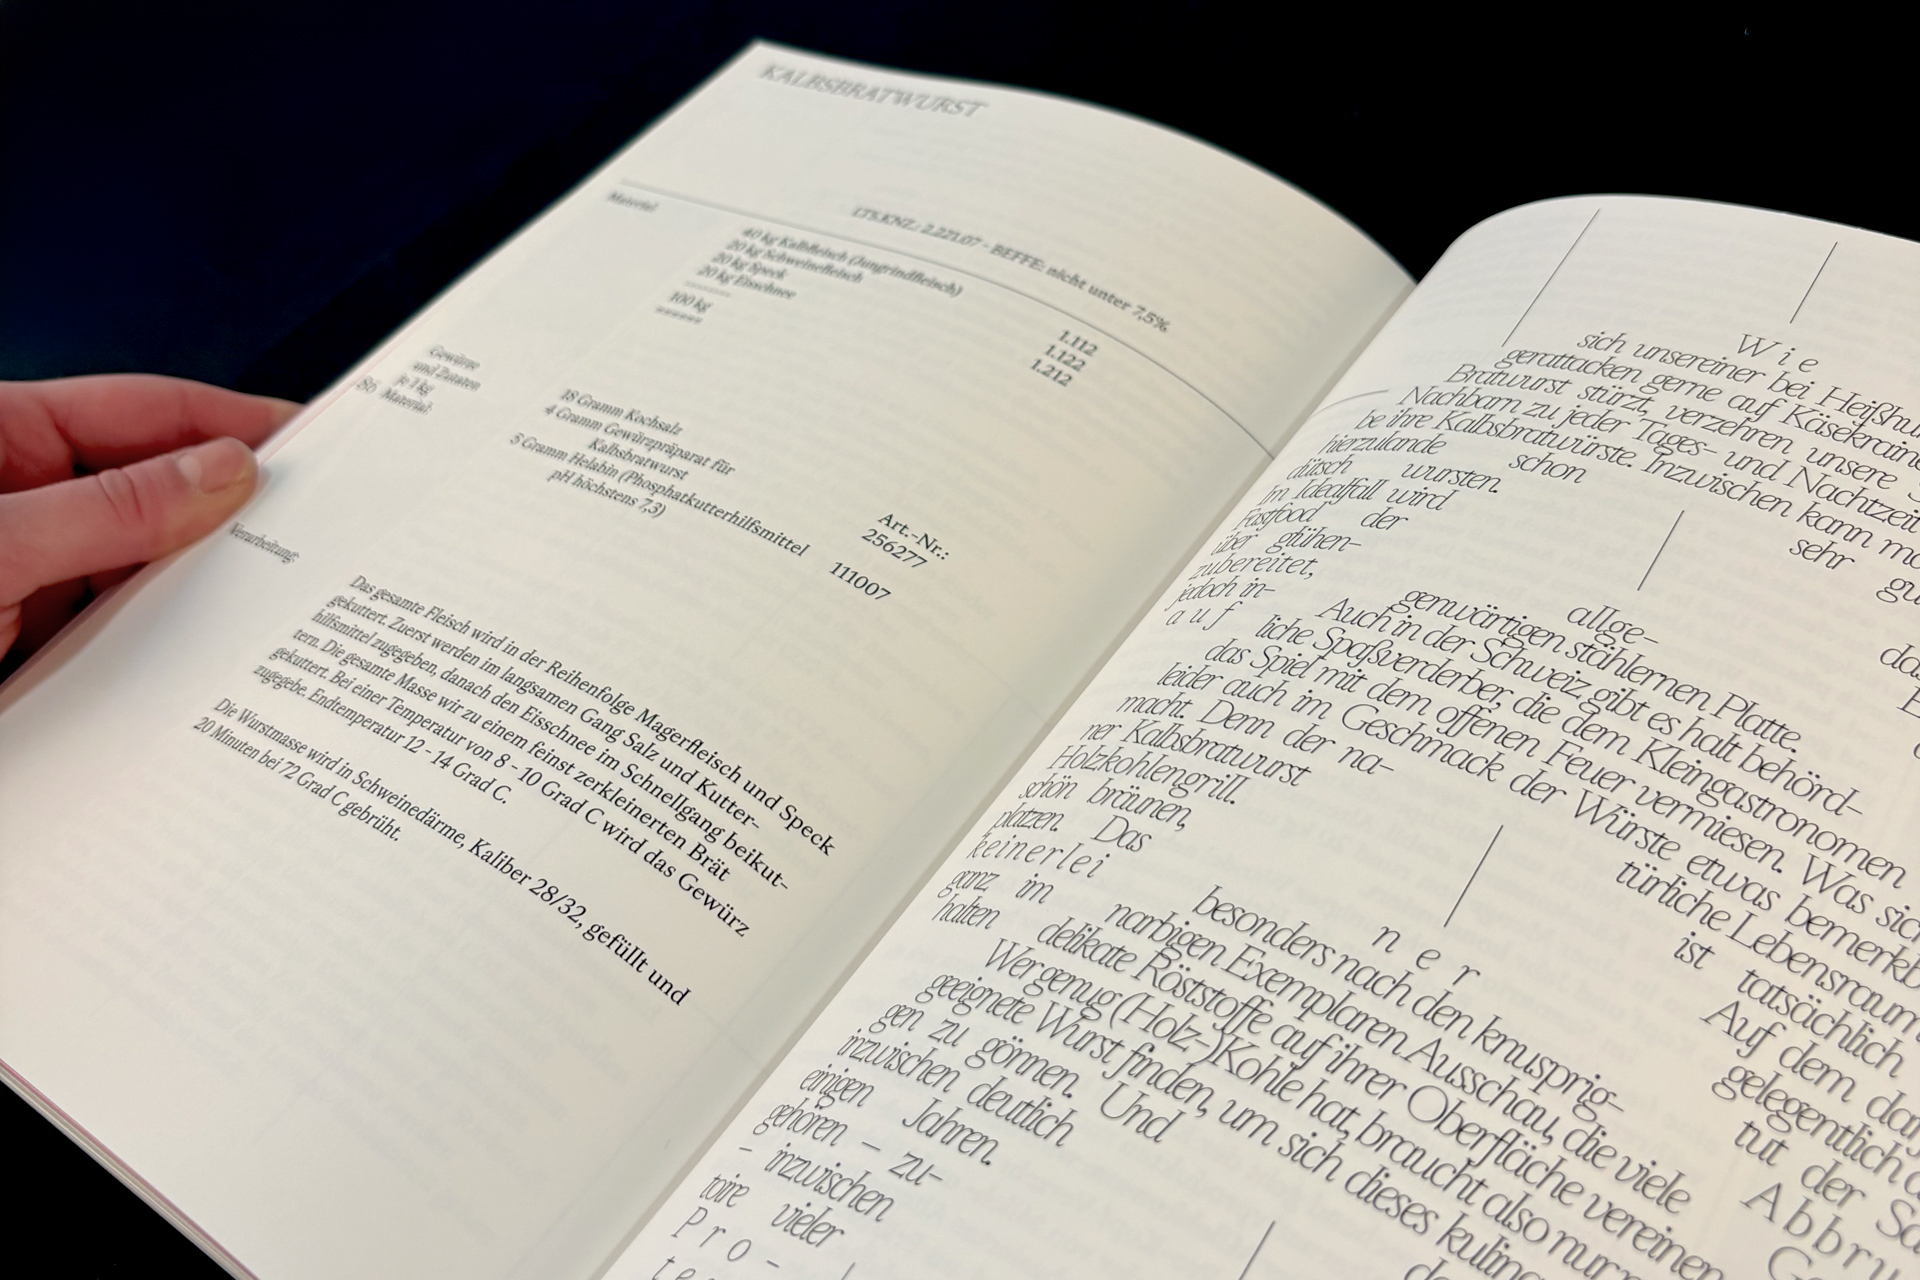 KALBSBRATWURST
LTS.KNZ.: 2.221.07 - BEFFE: nicht unter 7,5%
Material:
40 kg Kalbfleisch (Jungrindfleisch)
20 kg Schweinefleisch
20 kg Speck
20 kg Eisschnee
--------
100 kg
======
1.112
1.122
1.212
Gewürze
und Zutaten
je 1 kg
Material:
18 Gramm Kochsalz
4 Gramm Gewürzpräparat für
Kalbsbratwurst
5 Gramm Helabin (Phosphatkutterhilfsmittel
pH höchstens 7,3)
Art.-Nr.:
256277
111007
Verarbeitung:
Das gesamte Fleisch wird in der Reihenfolge Magerfleisch und Speck
gekuttert. Zuerst werden im langsamen Gang Salz und Kutter-
hilfsmittel zugegeben, danach den Eisschnee im Schnellgang beikut-
tern. Die gesamte Masse wir zu einem feinst zerkleinerten Brät
gekuttert. Bei einer Temperatur von 8 - 10 Grad C wird das Gewürz
zugegebe. Endtemperatur 12 - 14 Grad C.
Die Wurstmasse wird in Schweinedärme, Kaliber 28/32, gefüllt und
20 Minuten bei 72 Grad C gebrüht.
Wie
sich unsereiner bei
gerattacken gerne auf
Bratwurst stürzt, verzehren unsere
Nachbarn zu jeder Tages- und Nachtzeit
be ihre Kalbsbratwürste. Inzwischen kann
hierzulande schon sehr
dütsch wursten.
Im Idealfall wird
Fastfood der
über glühen-
zubereitet,
jedoch in-
auf
allge-
genwärtigen stählernen Platte.
Auch in der Schweiz gibt es halt behörd-
liche Spaßverderber, die dem Kleingastronomen
das Spiel mit dem offenen Feuer vermiesen. Was
leider auch im Geschmack der Würste etwas
macht. Denn der na- türliche Lebensraum
ner Kalbsbratwurst ist tatsächlich
Holzkohlengrill. Auf dem
schön bräunen, gelegentlich
platzen. Das tut der
keinerlei
ganz im
halten
ner
besonders nach den knusprig-
narbigen Exemplaren Ausschau, die viele
delikate Röststoffe auf ihrer Oberfläche vereinen.
Wer genug (Holz-)Kohle hat, braucht also nur
geeignete Wurst finden, um sich dieses
gen zu gönnen. Und
inzwischen deutlich
einigen Jahren.
gehören – zu-
– inzwischen
toire vieler
Pro-